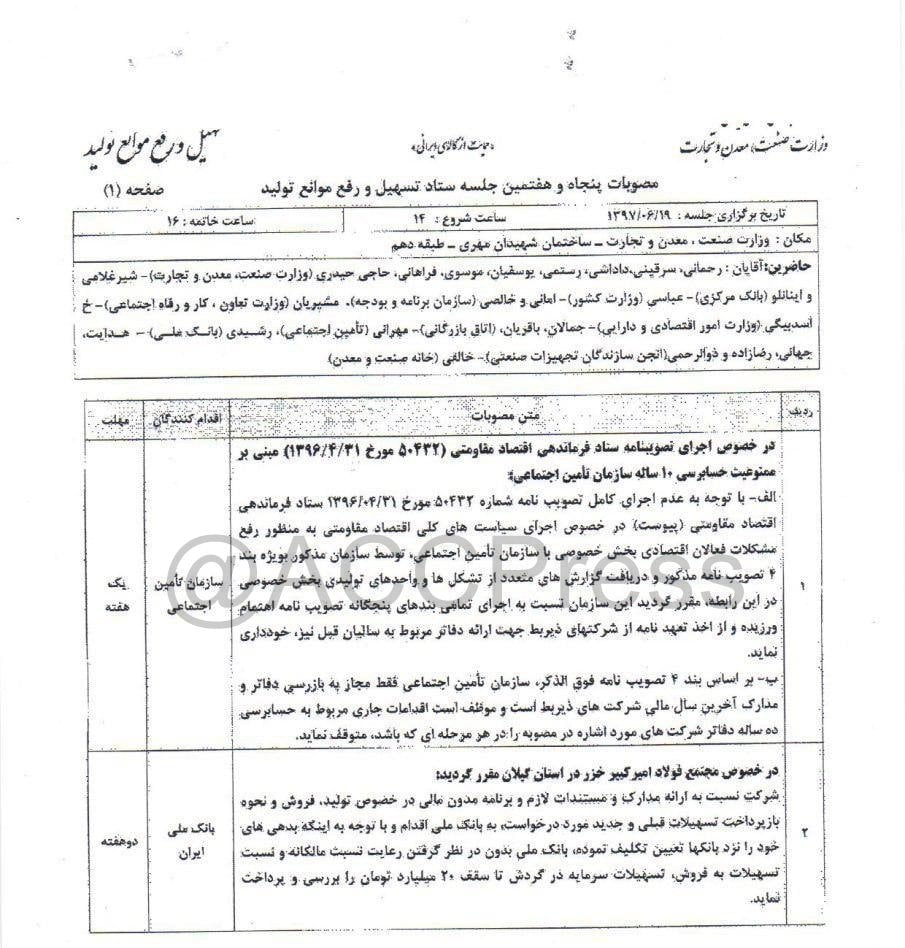 وزارت صنعت، معدن و تجارت
«حمایت از کالای ایرانی»
تسهیل و رفع موانع تولید
مصوبات پنجاه و هفتمین جلسه ستاد تسهیل و رفع موانع تولید
صفحه (۱)
تاریخ برگزاری جلسه : ۱۳۹۷/۰۶/۱۹
ساعت شروع : ۱۴
ساعت خاتمه : ۱۶
مکان : وزارت صنعت ، معدن و تجارت – ساختمان شهیدان مهری – طبقه دهم
حاضرین: آقایان : رحمانی، سرقینی، داداشی، رستمی، یوسفیان، موسوی، فراهانی، حاجی حیدری (وزارت صنعت، معدن و تجارت)- شیرغلامی
و اینانلو (بانک مرکزی)- عباسی (وزارت کشور)- امانی و خالصی (سازمان برنامه و بودجه)، مشیریان (وزارت تعاون ، کار و رفاه اجتماعی)- خ
اسدبیگی (وزارت امور اقتصادی و دارایی)- جمالان، باقریان، (اتاق بازرگانی)- مهرانی (تأمین اجتماعی)، رشیدی (بانک ملی)- هدایت،
جهانی، رضازاده و ذوالرحمی (انجن سازندگان تجهیزات صنعتی)- خالقی (خانه صنعت و معدن)
ردیف
متن مصوبات
اقدام کنندگان
مهلت
در خصوص اجرای تصویبنامه ستاد فرماندهی اقتصاد مقاومتی (۵۰۴۳۲ مورخ ۱۳۹۶/۴/۳۱) مبنی بر
ممنوعیت حسابرسی ۱۰ ساله سازمان تأمین اجتماعی:
الف- با توجه به عدم اجرای کامل تصویب نامه شماره ۵۰۴۳۲ مورخ ۱۳۹۶/۰۴/۳۱ ستاد فرماندهی
اقتصاد مقاومتی (پیوست) در خصوص اجرای سیاست های کلی اقتصاد مقاومتی به منظور رفع
مشکلات فعالان اقتصادی بخش خصوصی با سازمان تأمین اجتماعی، توسط سازمان مذکور بویژه بند
۴ تصویب نامه مذکور و دریافت گزارش های متعدد از تشکل ها و واحدهای تولیدی بخش خصوصی
در این رابطه، مقرر گردید این سازمان نسبت به اجرای تمامی بندهای پنجگانه تصویب نامه اهتمام
ورزیده و از اخذ تعهد نامه از شرکتهای ذیربط جهت ارائه دفاتر مربوط به سالیان قبل نیز، خودداری
نماید.
ب- بر اساس بند ۴ تصویب نامه فوق الذکر، سازمان تأمین اجتماعی فقط مجاز به بازرسی دفاتر و
مدارک آخرین سال مالی شرکت های ذیربط است و موظف است اقدامات جاری مربوط به حسابرسی
ده ساله دفاتر شرکت های مورد اشاره در مصوبه را در هر مرحله ای که باشد، متوقف نماید.
۱
سازمان تأمین
اجتماعی
یک
هفته
@ACCPress
در خصوص مجتمع فولاد امیرکبیر خزر در استان گیلان مقرر گردید:
شرکت نسبت به ارائه مدارک و مستندات لازم و برنامه مدون مالی در خصوص تولید، فروش و نحوه
بازپرداخت تسهیلات قبلی و جدید مورد درخواست، به بانک ملی اقدام و با توجه به اینکه بدهی های
خود را نزد بانکها تعیین تکلیف نموده، بانک ملی بدون در نظر گرفتن رعایت نسبت مالکانه و نسبت
تسهیلات به فروش، تسهیلات سرمایه در گردش تا سقف ۲۰ میلیارد تومان را بررسی و پرداخت
نماید.
۲
بانک ملی
ایران
دوهفته